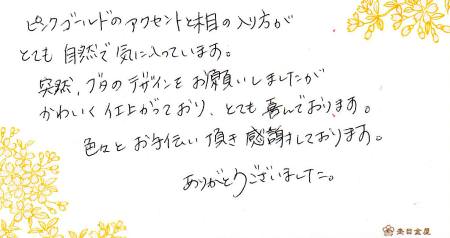 ピンクゴールドのアクセントと木目の入り方が
とても自然で気に入っています。
突然、ブタのデザインをお願いしましたが
かわいく仕上がっており、とても喜んでおります。
色々とお手伝い頂き感謝しております。
ありがとうございました。
杢目金屋